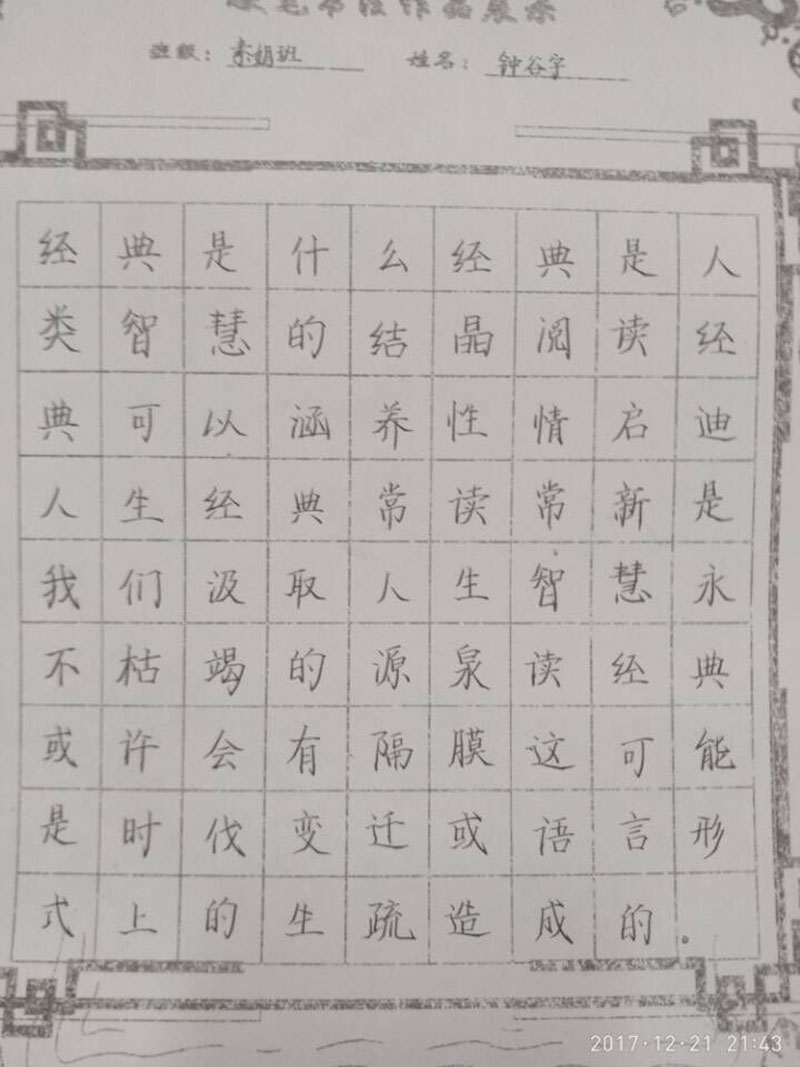 硬笔书法作品展示
班级：素娟班 姓名：钟谷宇
经典是什么经典是人
类智慧的结晶阅读经
典可以涵养性情启迪
人生经典常读常新是
我们汲取人生智慧永
不枯竭的源泉读经典
或许会有隔膜这可能
是时代变迁或语言形
式上的生疏造成的。
2017-12-21 21:43